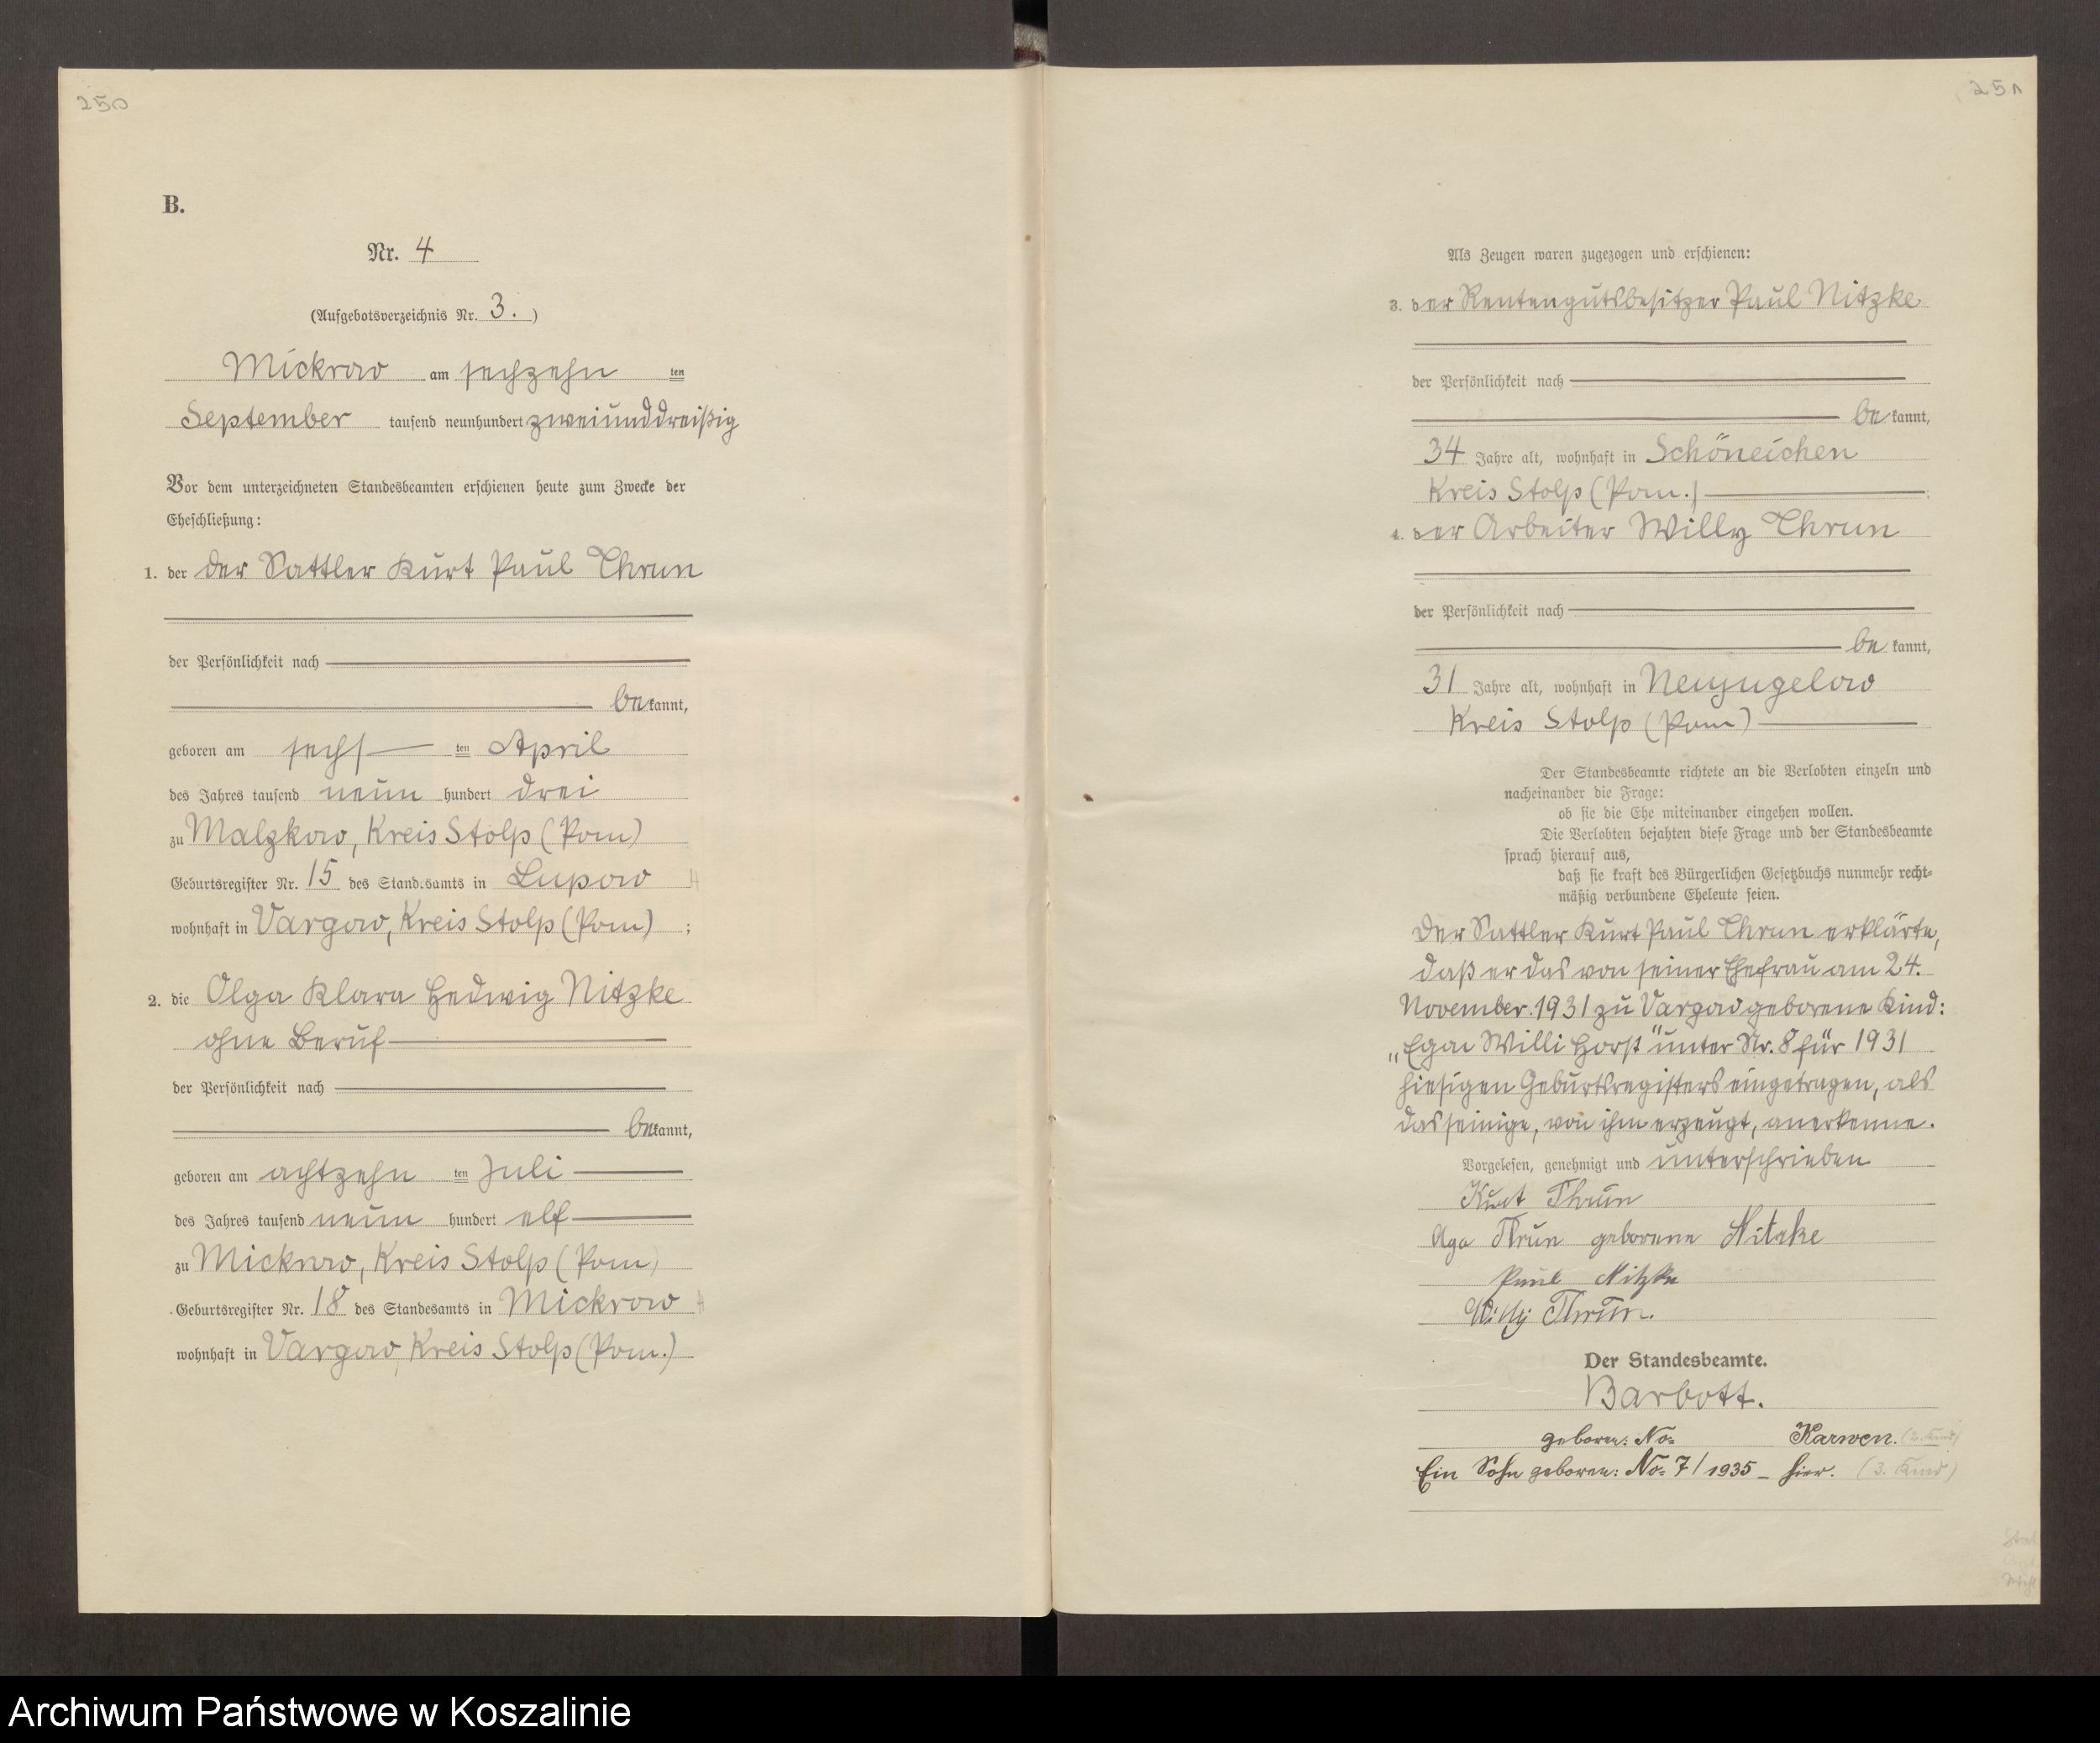 250
B.
Nr. 4
(Aufgebotsverzeichnis Nr. 3.)
Mickrow am sechzehn ten
September tausend neunhundert zweiunddreißig
Vor dem unterzeichneten Standesbeamten erschienen heute zum Zwecke der
Eheschließung:
1. der der Sattler Kurt Paul Thrun
der Persönlichkeit nach
be kannt,
geboren am sechs ten April
des Jahres tausend neun hundert drei
zu Malzkow, Kreis Stolp (Pom)
Geburtsregister Nr. 15 des Standesamts in Lupow
wohnhaft in Vargow, Kreis Stolp (Pom) ;
2. die Olga Klara Hedwig Nitzke
ohne Beruf
der Persönlichkeit nach
be kannt,
geboren am achtzehn ten Juli
des Jahres tausend neun hundert elf
zu Mickrow, Kreis Stolp (Pom)
Geburtsregister Nr. 18 des Standesamts in Mickrow
wohnhaft in Vargow, Kreis Stolp (Pom.)
251
Als Zeugen waren zugezogen und erschienen:
3. der Rentengutsbesitzer Paul Nitzke
der Persönlichkeit nach
be kannt,
34 Jahre alt, wohnhaft in Schöneichen
Kreis Stolp (Pom.)
4. der Arbeiter Willy Thrun
der Persönlichkeit nach
be kannt,
31 Jahre alt, wohnhaft in Neujugelow
Kreis Stolp (Pom)
Der Standesbeamte richtete an die Verlobten einzeln und
nacheinander die Frage:
ob sie die Ehe miteinander eingehen wollen.
Die Verlobten bejahten diese Frage und der Standesbeamte
sprach hierauf aus,
daß sie kraft des Bürgerlichen Gesetzbuchs nunmehr recht-
mäßig verbundene Eheleute seien.
Der Sattler Kurt Paul Thrun erklärte,
daß er das von seiner Ehefrau am 24.
November 1931 zu Vargow geborene Kind:
„ Willi Horst" unter Nr. 8 für 1931
hiesigen Geburtsregisters eingetragen, als
das seinige, von ihm erzeugt, anerkenne.
Vorgelesen, genehmigt und unterschrieben
Kurt Thrun
Thrun geborene Nitzke
Paul Nitzke
Willy Thrun.
Der Standesbeamte.
Barbott.
geboren: No= Karwen. (2. Kind)
Ein Sohn geboren: No= 7/1935 – hier. (3. Kind)
Archiwum Państwowe w Koszalinie